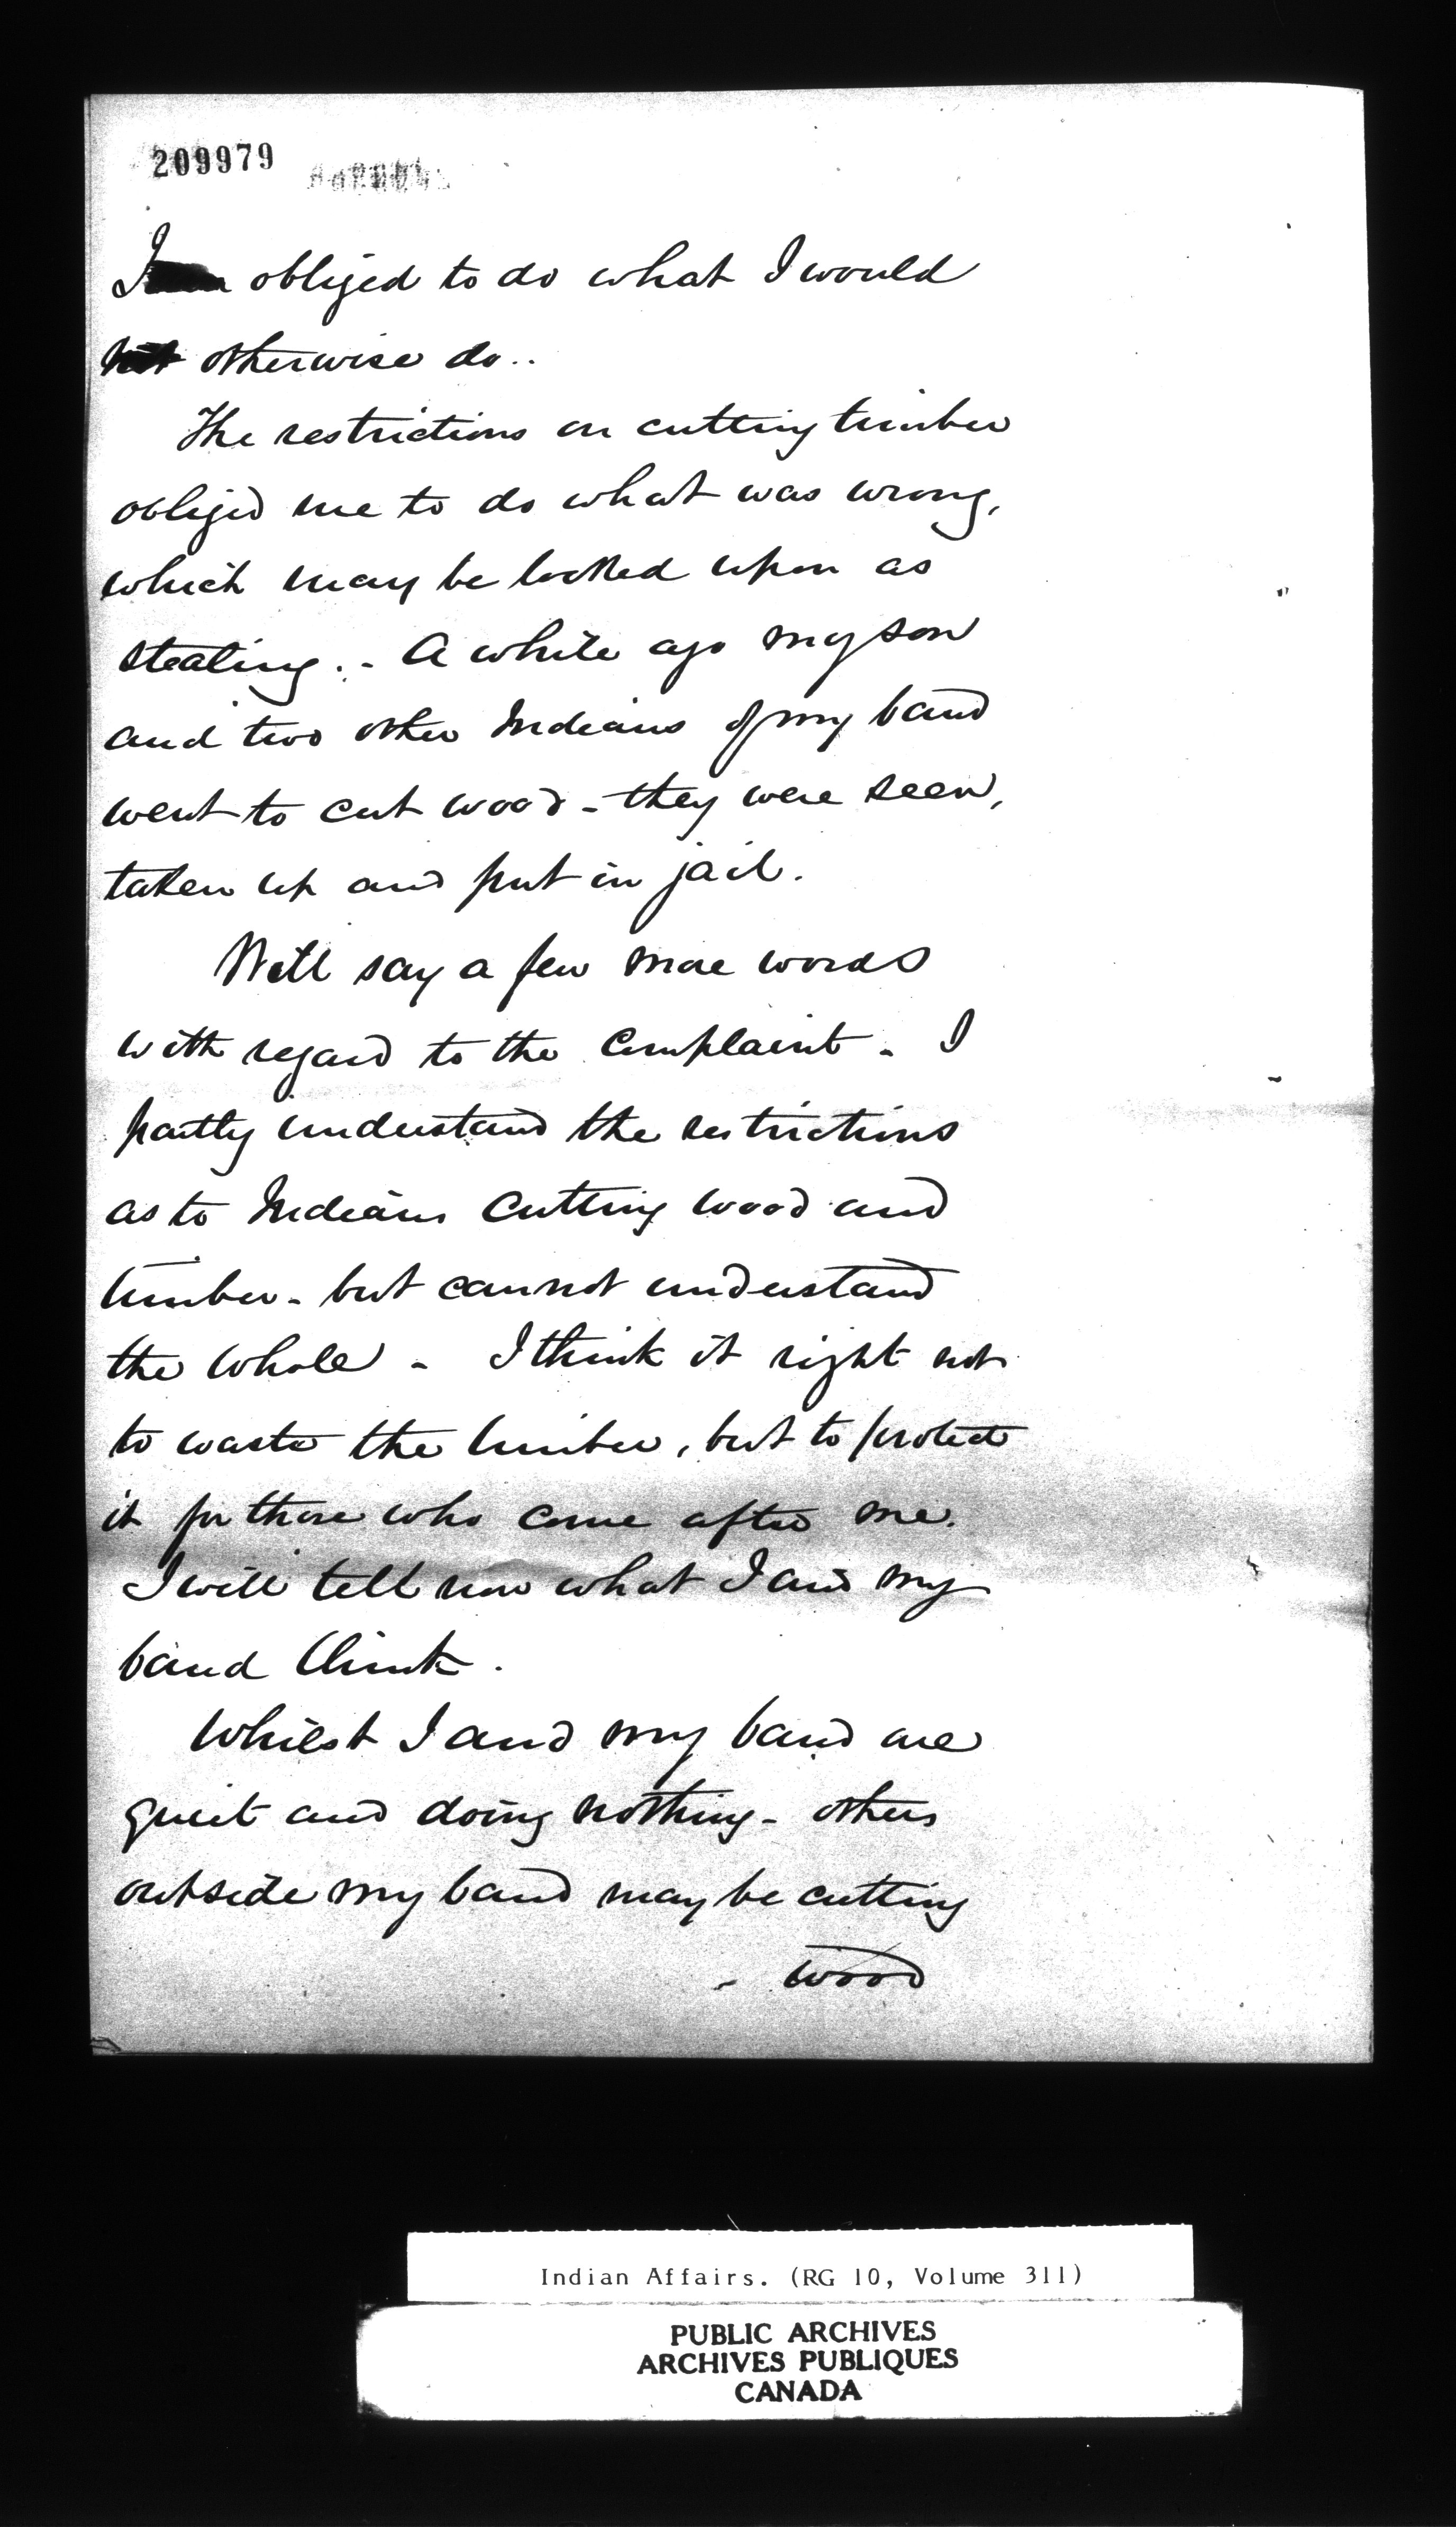 209979
I obliged to do what I would
not otherwise do..
The restrictions on cutting timber
obliged me to do what was wrong,
which may be looked upon as
stealing. - A while ago my son
and two other Indians of my band
went to cut wood - they were seen,
taken up and put in jail.
Will say a few more words
with regard to the Complaint - I
partly understand the restrictions
as to Indians cutting wood and
timber - but cannot understand
the whole - I think it right not
to waste the timber, but to protect
it for those who come after me.
I will tell now what I and my
band think.
Whilst I and my band are
quiet and doing nothing - others
outside my band may be cutting
- wood
Indian Affairs. (RG 10, Volume 311)
PUBLIC ARCHIVES
ARCHIVES PUBLIQUES
CANADA